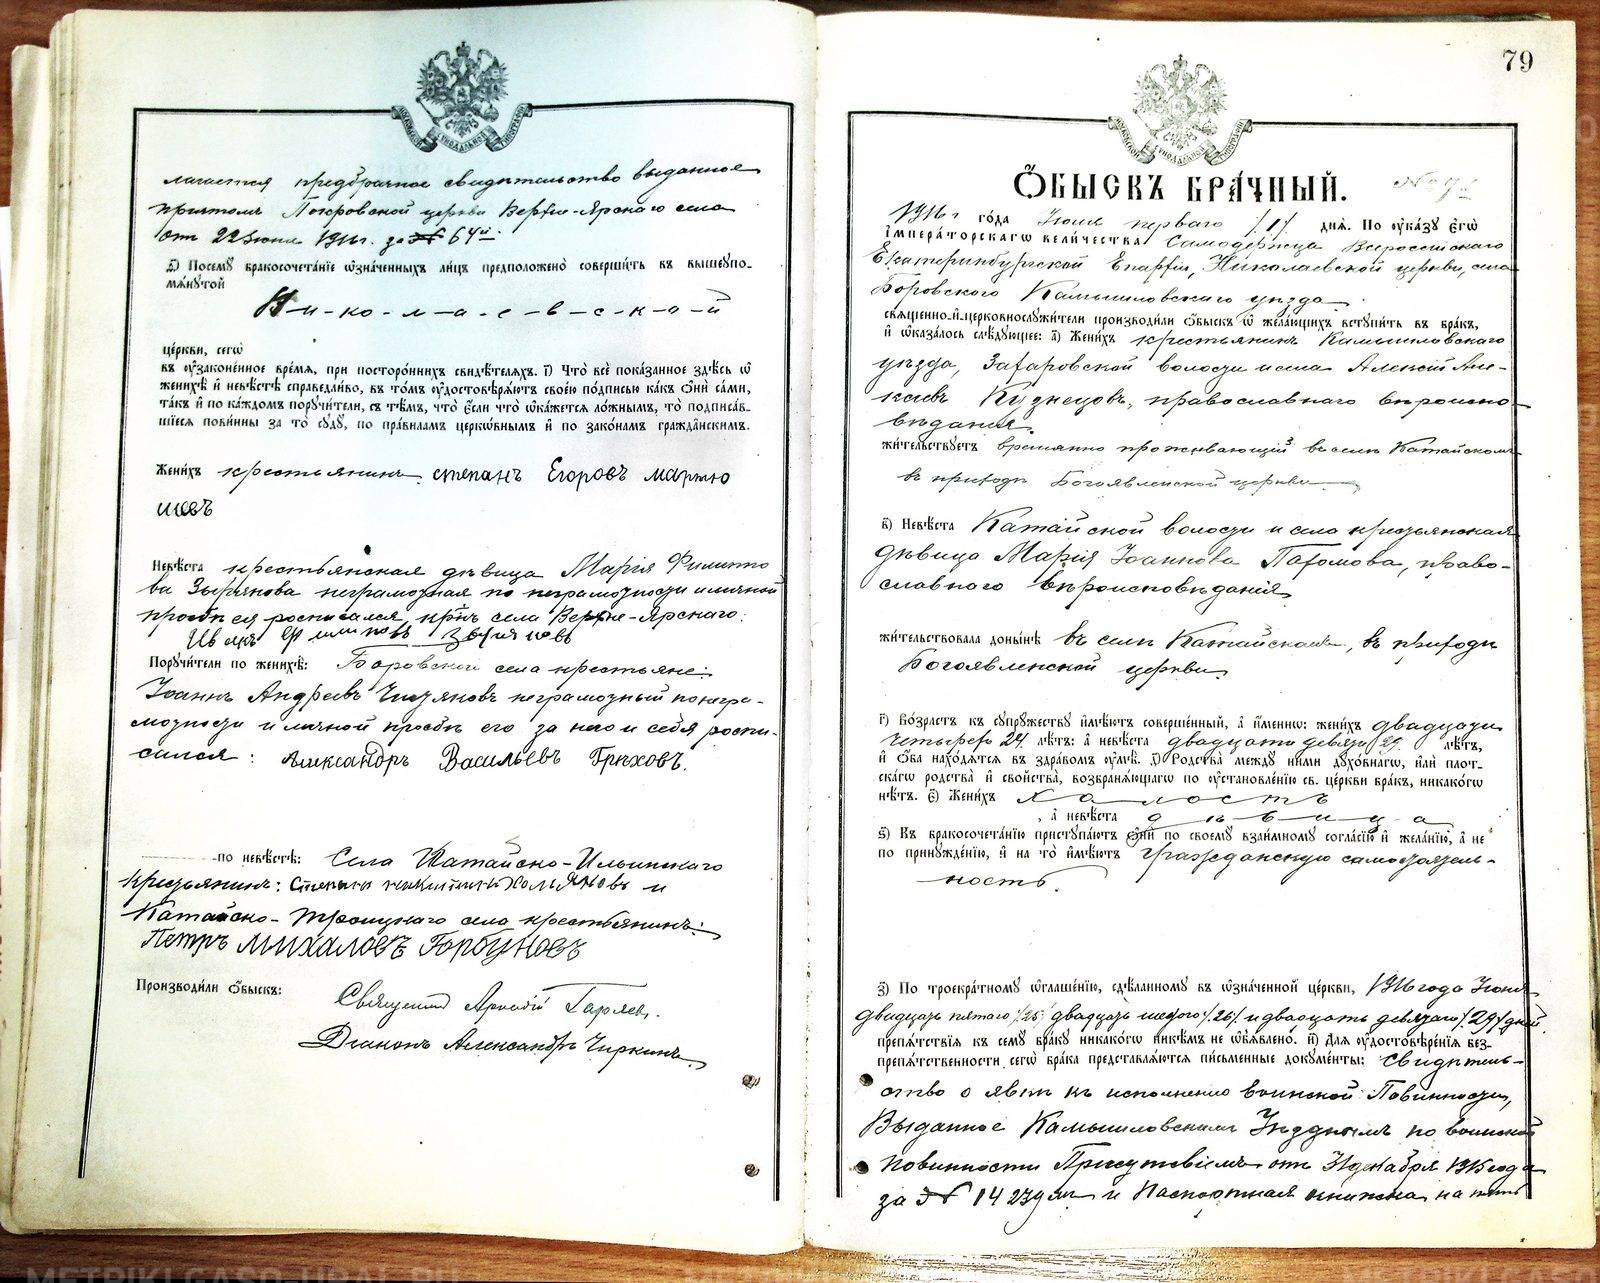 лагается предбрачное свидѣтельство выданное
причтомъ Покровской церкви Верхне-Ярскаго села
отъ 22 Іюня 1916 г. за № 64й.
Ѕ) Посему бракосочетаніе ѿзначенныхъ лицъ предположено совершить въ вышеупо-
мѧнутой
Н-и-ко-л-а-е-в-с-к-о-й
церкви, сегѡ
въ оузаконенное времѧ, при постороннихъ свидѣтелѧхъ. І) Что всё показанное здѣсь ѡ
женихѣ и невѣстѣ справедливо, въ томъ оудостовѣрѧютъ своею подписью какъ Ѻни сами,
такъ и по каждомъ поручители, съ тѣмъ, что если что ѡкажетсѧ ложнымъ, то подписав-
шіесѧ повинны за то суду, по правиламъ церковнымъ и по законамъ гражданскимъ.
Женихъ крестьянинъ степанъ Егоровъ мартю
шевъ
Невѣста крестьянская дѣвица Марія Филиппо
ва Зырянова неграмотная по неграмотности и личной
просьбѣ ея росписался, кр-нъ села Верхне-Ярскаго:
Иванъ Филиповъ Зыряновъ
Поручители по женихѣ: Боровской села крестьяне:
Іоаннъ Андреевъ неграмотный по негра-
мотности и личной просьбѣ его за него и себя роспи-
сался: Александръ Васильевъ Грѣховъ.
по невѣстѣ: Села Катайско-Ильинскаго
крестьянинъ: и
Катайско-Троицкаго села крестьянинъ:
Петръ Михаловъ Горбуновъ
Производили Ѻбыскъ: Священникъ Аркадій Гаряевъ.
Діаконъ Александръ Чиркинъ
79
МОСКОВСКОЙ СѴНОДАЛЬНОЙ ТИПОГРАФІИ
МОСКОВСКОЙ СѴНОДАЛЬНОЙ ТИПОГРАФІИ
ѺБЫСКЪ БРАЧНЫЙ.
1916 г. года Іюля перваго /1/ днѧ. По оуказу Егѡ
Императорскагѡ величества Самодержца Всероссійскаго
Екатеринбургской Епархіи, Николаевской церкви, села
Боровского Камышловскаго уѣзда
свѧщенно-и-церковнослужители производили Ѻбыскъ ѡ желающихъ вступить въ бракъ,
и ѡказалось слѣдующее: а) Женихъ крестьянинъ Камышловскаго
уѣзда, Захаровской волости и села Алексѣй Али-
Кузнецовъ, православнаго вѣроиспо-
вѣданія.
жительствуетъ временно проживающій въ селѣ Катайскомъ
въ приходѣ Богоявленской церкви
в) Невѣста Катайской волости и села крестьянская
дѣвица Марія Іоаннова Пахомова, право-
славного вѣроисповѣданія
жительствовала донынѣ въ селѣ Катайскомъ, въ приходѣ
Богоявленской церкви
г) Возрастъ къ супружеству имѣютъ совершенный, а именно: женихъ двадцати
четырехъ 24 лѣтъ: а невѣста двадцати девяти 29 лѣтъ,
и Ѻба находѧтсѧ въ здравомъ оумѣ. д) Родства между ними духовнагѡ, или плот-
скагѡ родства и свойства, возбранѧющагѡ по оустановленію св. церкви бракъ, никакогѡ
нѣтъ. е) Женихъ холостъ
а невѣста дѣвица
ѕ) Къ бракосочетанію приступаютъ Ѻни по своему взаимному согласію и желанію, а не
по принужденію, и на то имѣютъ гражданскую самостоятель-
ность.
з) По троекратному ѡглашенію, сдѣланному въ ѿзначенной церкви, 1916 года Іюня
двадцать пятаго /25/ двадцать шестого /26/ и двадцать девятаго /29/ дней
препѧтствіѧ къ сему браку никакогѡ никѣмъ не ѡбъѧвлено. и) Длѧ оудостовѣреніѧ без-
препѧтственности сегѡ брака представлѧютсѧ письменные документы: Свидѣтель-
ство о явкѣ къ исполненію воинской Повинности,
Выданное Камышловскимъ Уѣзднымъ по воинской
повинности Присутствіемъ отъ декабря 1915 года
за № и Паспортная книжка на пять